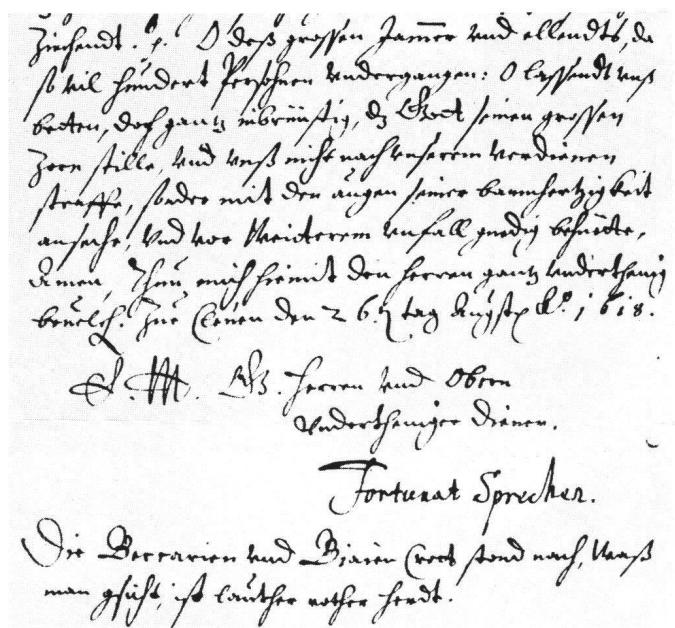 Ziechendt. p. O deß grossen Jammer vnd ellendts, da
so vil hundert Persohnen vndergangen: O lassendt vnß
betten, doch gantz inbrünstig, dz Gott seinen grossen
Zorn stille, vnd vnß nicht nach vnserem verdienen
straffe, sonder mit den augen seiner barmhertzigkeit
ansehe, vnd vor Weiterem vnfall gnedig behüette,
Amen, Thun mich hiemit den herren gantz vnderthenig
beuelch. Zue Cleuen den 26. tag Augst 1618.
E. W. herren vnd Obern
Vndertheniger Diener.
Fortunat Sprecher.
Die Beccarien vnd stond noch, Waß
man gsicht, ist lauther rother herdt.